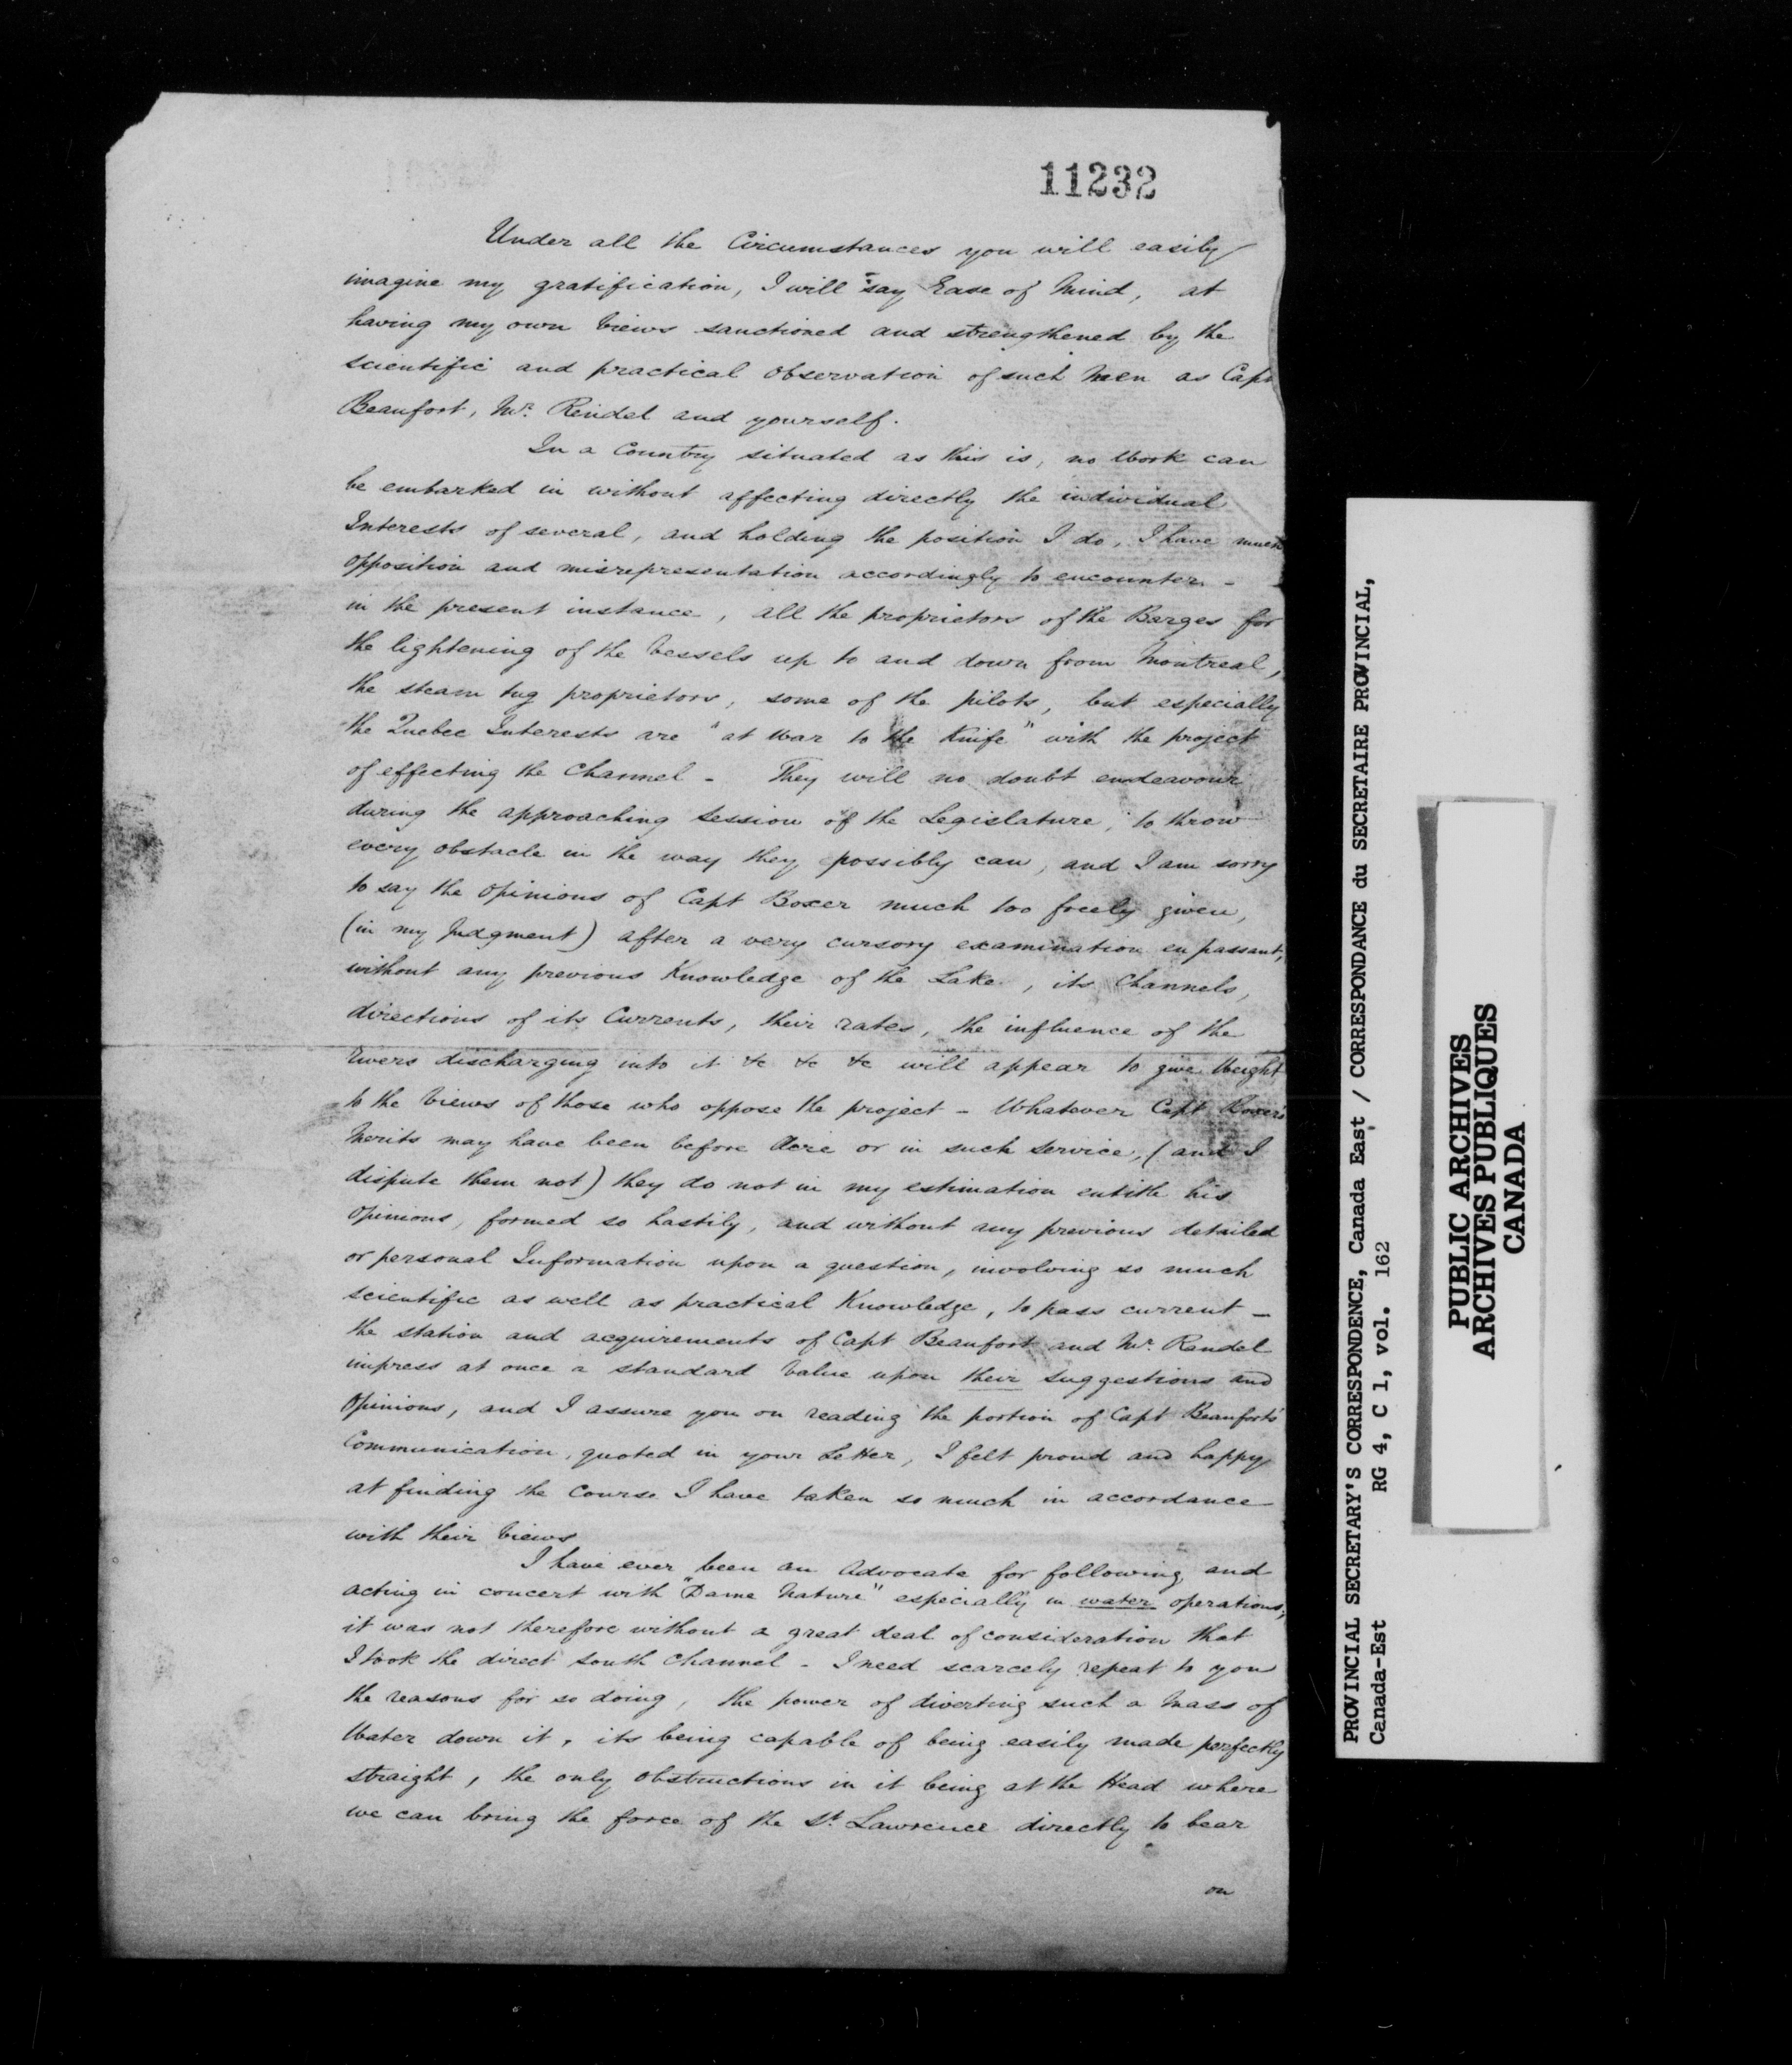 11232
Under all the Circumstances you will easily
imagine my gratification, I will say Ease of Mind, at
having my own Views sanctioned and strengthened by the
scientific and practical observation of such Men as Capt
Beaufort, Mr. Rendel and yourself.
In a Country situated as this is, no Work can
be embarked in without affecting directly the individual
Interests of several, and holding the position I do, I have much
opposition and misrepresentation accordingly to encounter -
in the present instance, all the proprietors of the Barges for
the lightening of the Vessels up to and down from Montreal,
the steam tug proprietors, some of the pilots, but especially
the Quebec Interests are "at War to the Knife" with the project
of effecting the Channel - They will no doubt endeavour
during the approaching Session of the Legislature, to throw
every obstacle in the way they possibly can, and I am sorry
to say the opinions of Capt Boxer much too freely given,
(in my Judgment) after a very cursory examination en passant,
without any previous Knowledge of the Lake, its Channels,
directions of its Currents, their rates, the influence of the
Rivers discharging into it &c &c &c will appear to give Weight
to the Views of those who oppose the project - Whatever Capt Boxer's
Merits may have been before Acre or in such service, (and I
dispute them not) they do not in my estimation entitle his
opinions, formed so hastily, and without any previous detailed
or personal Information upon a question, involving so much
scientific as well as practical Knowledge, to pass current -
the station and acquirements of Capt Beaufort and Mr. Rendel
impress at once a standard Value upon their suggestions and
opinions, and I assure you on reading the portion of Capt Beaufort's
Communication, quoted in your Letter, I felt proud and happy
at finding the Course I have taken so much in accordance
with their Views
I have ever been an Advocate for following and
acting in concert with "Dame Nature" especially in water operations,
it was not therefore without a great deal of consideration that
I took the direct South Channel - I need scarcely repeat to you
the reasons for so doing, the power of diverting such a Mass of
Water down it, its being capable of being easily made perfectly
straight, the only obstructions in it being at the Head where
we can bring the force of the St. Lawrence directly to bear
on
PROVINCIAL SECRETARY'S CORRESPONDENCE, Canada East / CORRESPONDANCE du SECRETAIRE PROVINCIAL,
Canada-Est RG 4, C 1, vol. 162
PUBLIC ARCHIVES
ARCHIVES PUBLIQUES
CANADA